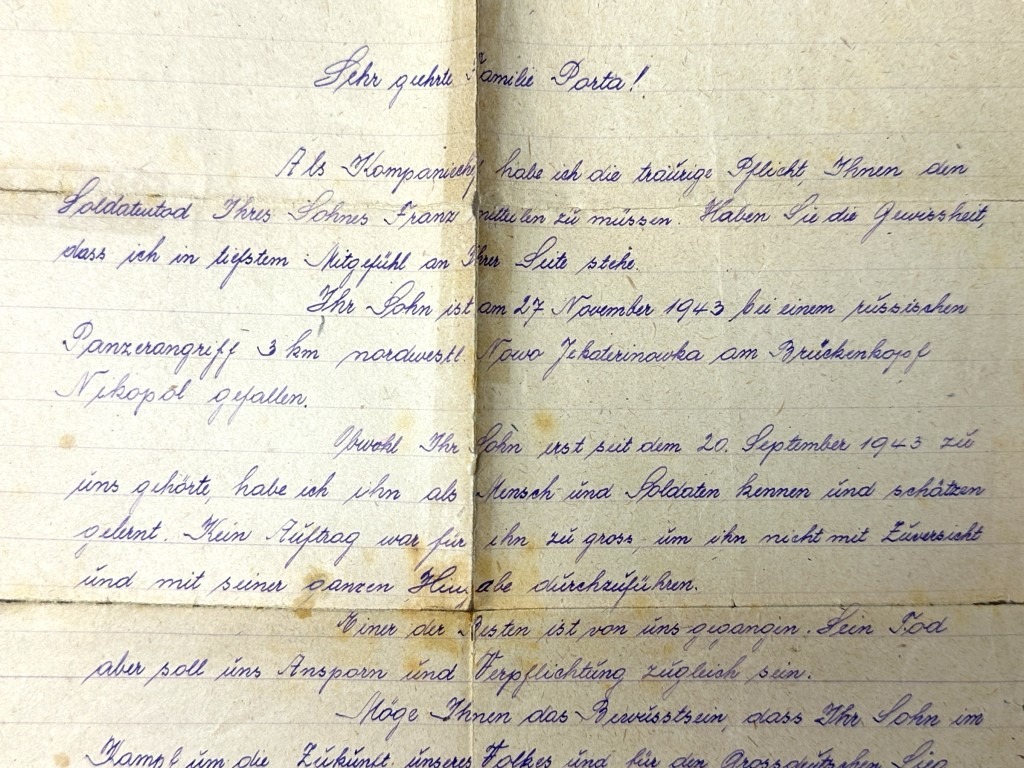 Sehr geehrte Familie Porta!
Als Kompaniechef habe ich die traurige Pflicht, Ihnen den
Soldatentod Ihres Sohnes Franz mitteilen zu müssen. Haben Sie die Gewissheit,
dass ich in tiefstem Mitgefühl an Ihrer Seite stehe.
Ihr Sohn ist am 27 November 1943 bei einem russischen
Panzerangriff 3 km nordwestl. Nowo Jekaterinowka am Brückenkopf
Nikopol gefallen.
Obwohl Ihr Sohn erst seit dem 20. September 1943 zu
uns gehörte, habe ich ihn als Mensch und Soldaten kennen und schätzen
gelernt. Kein Auftrag war für ihn zu gross, um ihn nicht mit Zuversicht
und mit seiner ganzen Hingabe durchzuführen.
Einer der Besten ist von uns gegangen. Sein Tod
aber soll uns Ansporn und Verpflichtung zugleich sein.
Möge Ihnen das Bewusstsein, dass Ihr Sohn im
Kampf um die Zukunft unseres Volkes und für den Grossdeutschen Sieg